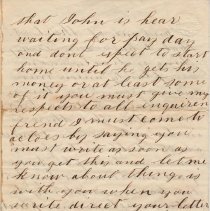 that John is hear
waiting for pay day
and dont expect to start
home until he gets his
money or at least some
of it you may give my
respects to all inquiren
friend I must come to
a close by saying you
must write as soon as
you get this and let me
know about things is
with you when you
write direct your letter